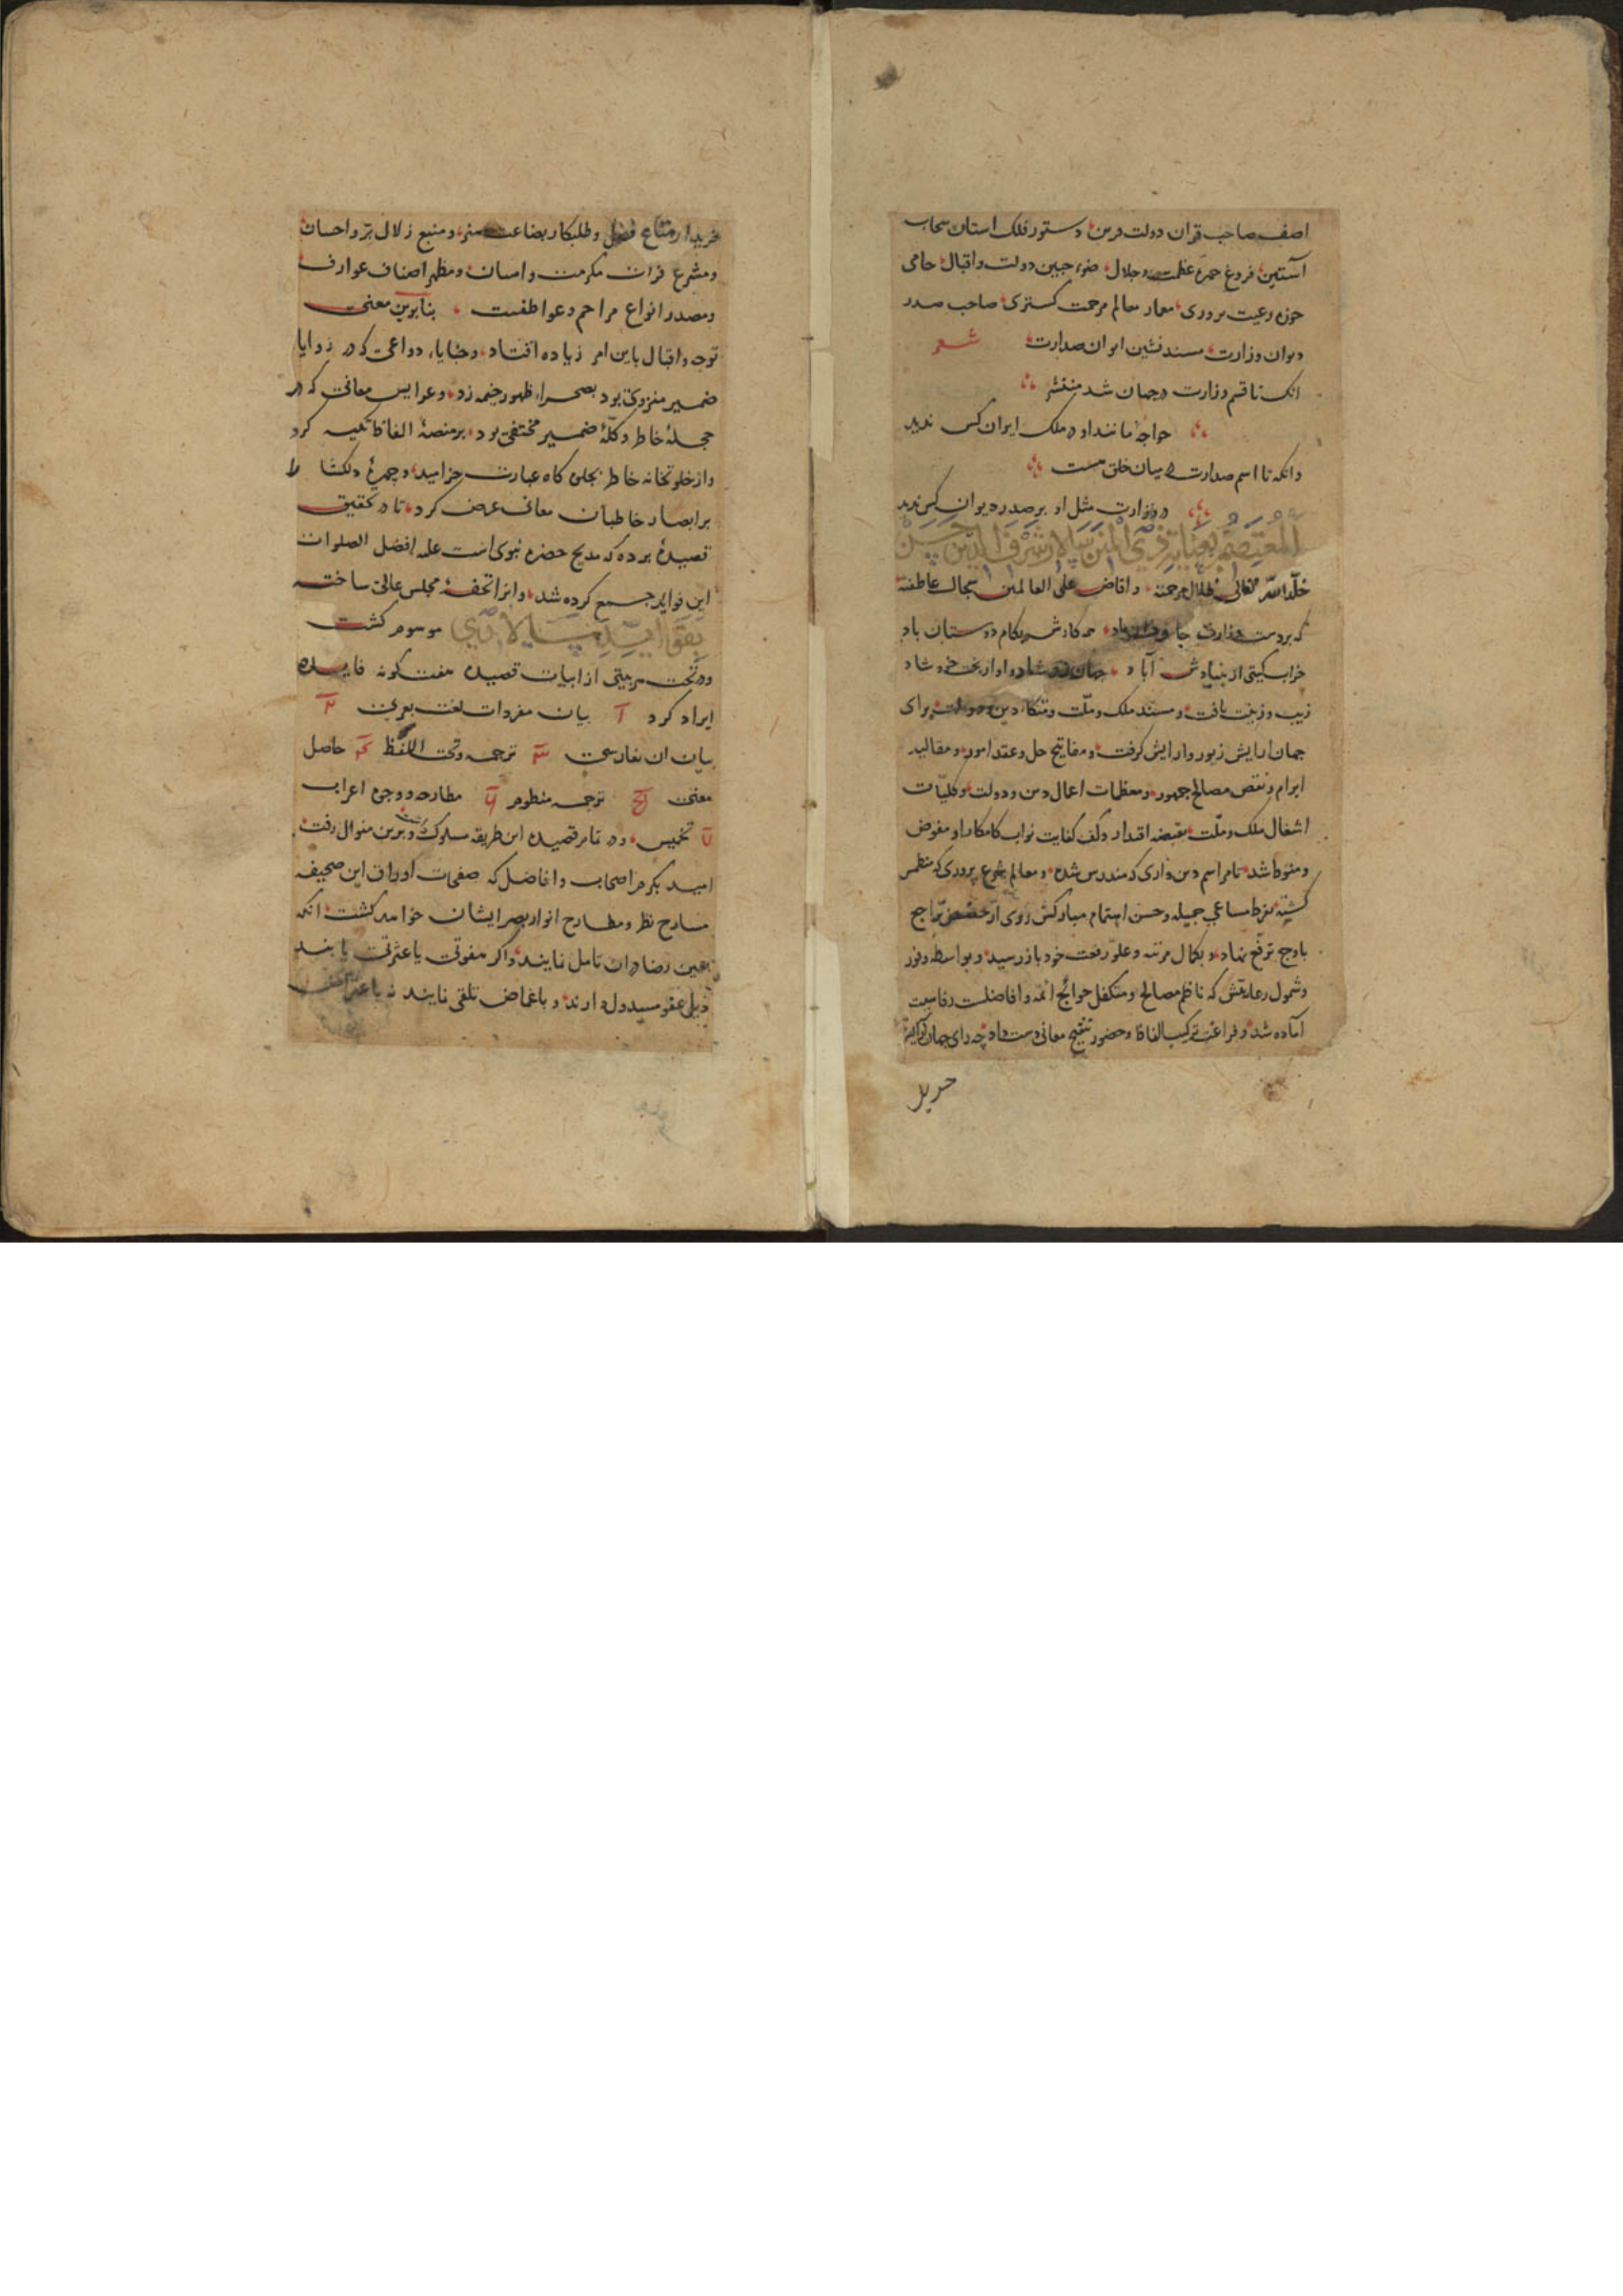 اصف صاحب قران دولت قرین دستور فلک استان سحاب
آستین فروغ جمرهٔ عظمت و جلال ضوء جبین دولت و اقبال حامی
حوزه رعیت پروری معمار معالم مرحمت کستری صاحب صدر
دیوان وزارت مسند نشین ایوان صدارت شعر
انک تا قسم وزارت در جهان شد منتشر
خواجه مانند او در ملک ایران کس ندید
وانکه تا اسم صدارت در میان خلق هست
در وزارت مثل او بر صدر دیوان کس ندید
المعتصم بعنایة ذی المنن سپالار شرف الدین حسن
خلّد الله تعالی ظلال مرحمته و افاض علی العالمین سجال عاطفته
که بر دست وزارت جاودان باد همه کارش بکام دوستان باد
خراب کیتی از بنیادش آباد جهان زو شاد و او از بخت خود شاد
زیب و زینت یافت و مسند ملک و ملّت و متکاء دین و دولت برای
جهان ارایش زیور و ارایش کرفت و مفاتیح حل و عقد امور و مقالید
ابرام و نقض مصالح جمهور و معظمات اعمال دین و دولت و کلیّات
اشغال ملک و ملّت بقبضه اقتدار و کف کفایت نواب کامکار او مفوض
و منوط شد تا مراسم دین داری که مندرس شده و معالم شرع پروری که منطمس
کشته بفرط مساعی جمیله و حسن اهتمام مبارکش روی از حضیض تراجع
باوج ترفّع نهاد و بکمال مرتبه و علوّ رفعت خود باز رسید و بواسطه وفور
و شمول رعایتش که ناظم مصالح و متکفل حوائج ائمه و افاضلست رفاهیت
آماده شد و فراغت ترکیب الفاظ و حضور تنقیح معانی دست داد چه رای جهان آرایش
خریدار
خریدار متاع فضل و طلبکار بضاعت هنر و منبع زلال برّ و احسان
و مشرع فرات مکرمت و امتنان و مظهر اصناف عوارف
و مصدر انواع مراحم و عواطفست بنابرین معنی
توجه و اقبال باین امر زیاده افتاد و خبایاء دواعی که در زوایا
ضمیر منزوی بود بصحراء ظهور خیمه زد و عرایس معانی که در
حجلهٔ خاطر و کلّهٔ ضمیر مختفی بود بر منصهٔ الفاظ تکیه کرد
و از خلوتخانه خاطر بجلوه کاه عبارت خرامید و چهرهٔ دلکشا را
بر ابصار خاطبان معانی عرض کرد تا در تحقیق
قصیدهٔ برده که مدیح حضرة نبوی است علیه افضل الصلوات
این فواید جمع کرده شد و انرا تحفهٔ مجلس عالی ساخته
موسوم کشت
و در تحت هر بیتی از ابیات قصیده هفت کونه فایده
ایراد کرد آ بیان مفردات لغت بعربی ٢
بیان ان بفارسی ٣ ترجمه و تحت اللفظ ٤ حاصل
معنی ترجمه منظوم مطارحه و وجوه اعراب
تخمیس و در تمام قصیده این طریقه سلوک و برین منوال رفت
امید بکرم اصحاب و افاضل که صفحات اوراق این صحیفه
مسارح نظر و مطارح انوار بصر ایشان خواهد کشت انکه
بعین رضا دران تامل نمایند و اکر هفوتی یا عثرتی یابند
ذیل عفو مسدول دارند و باغماض تلقی نمایند نه باعتراض